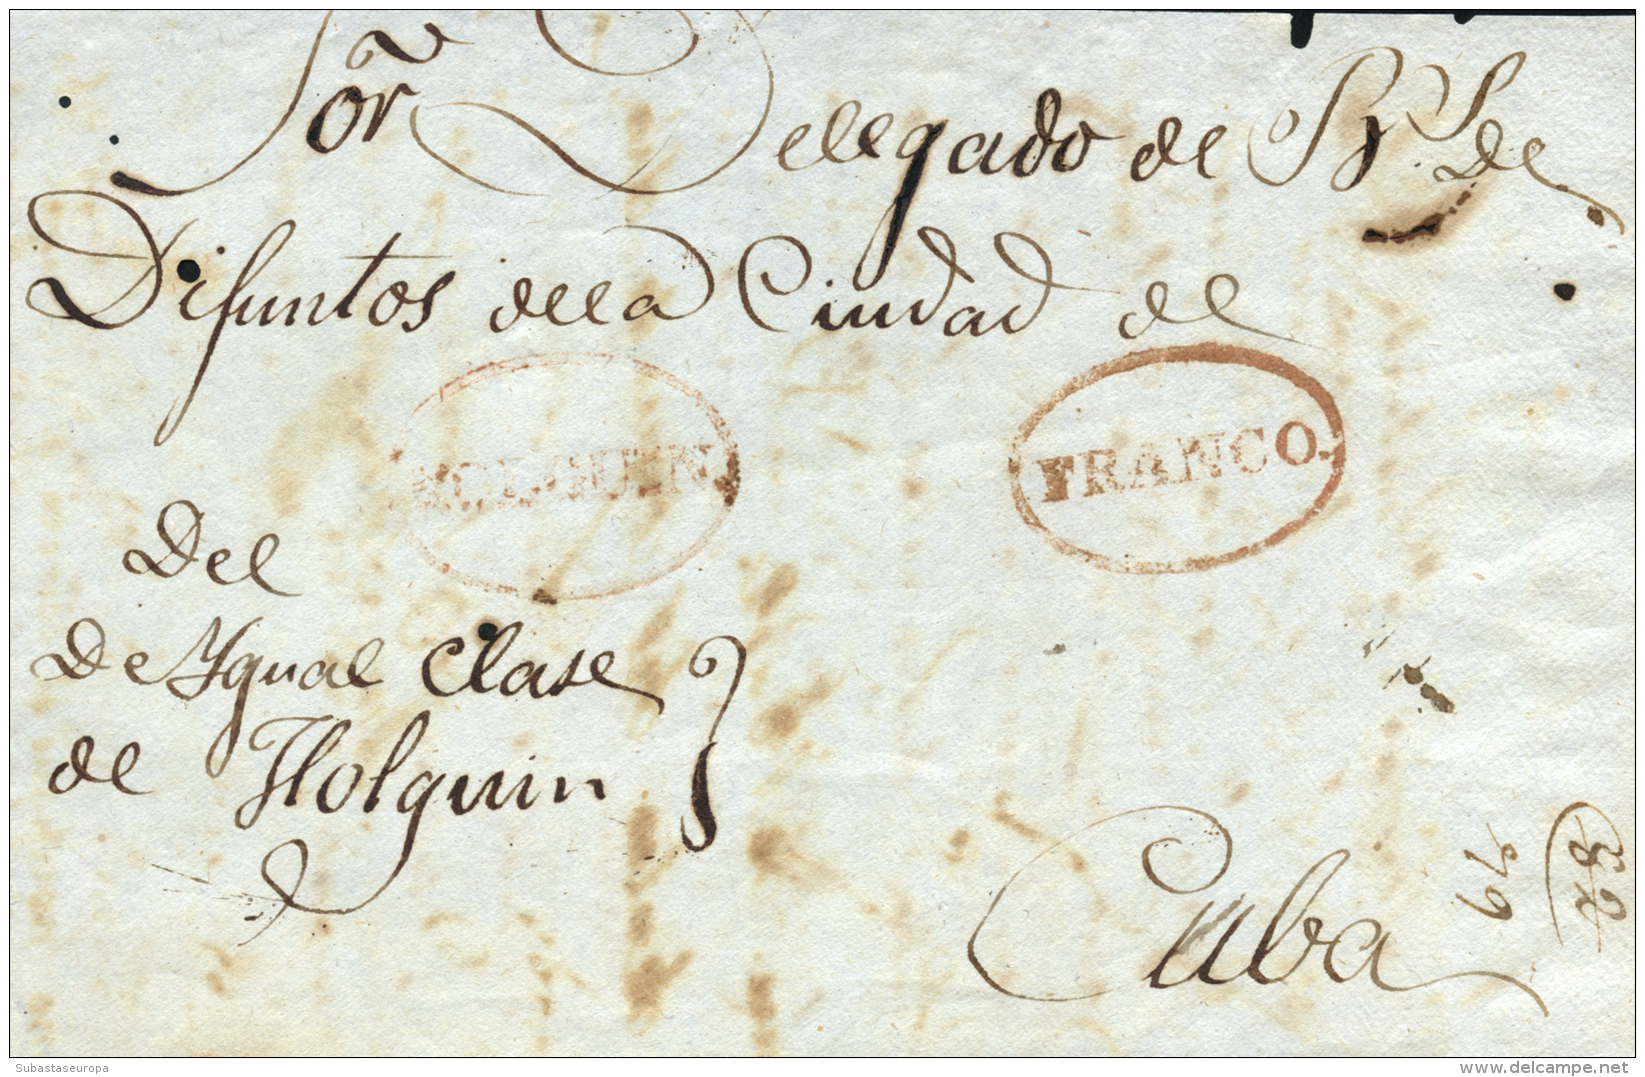 Sor Delegado de Bs. de
Difuntos dela Ciudad de
HOLGUIN.
FRANCO.
Del
De Ygual Clase
de Holguin
Cuba
79
Subastaseuropa
delcampe.net